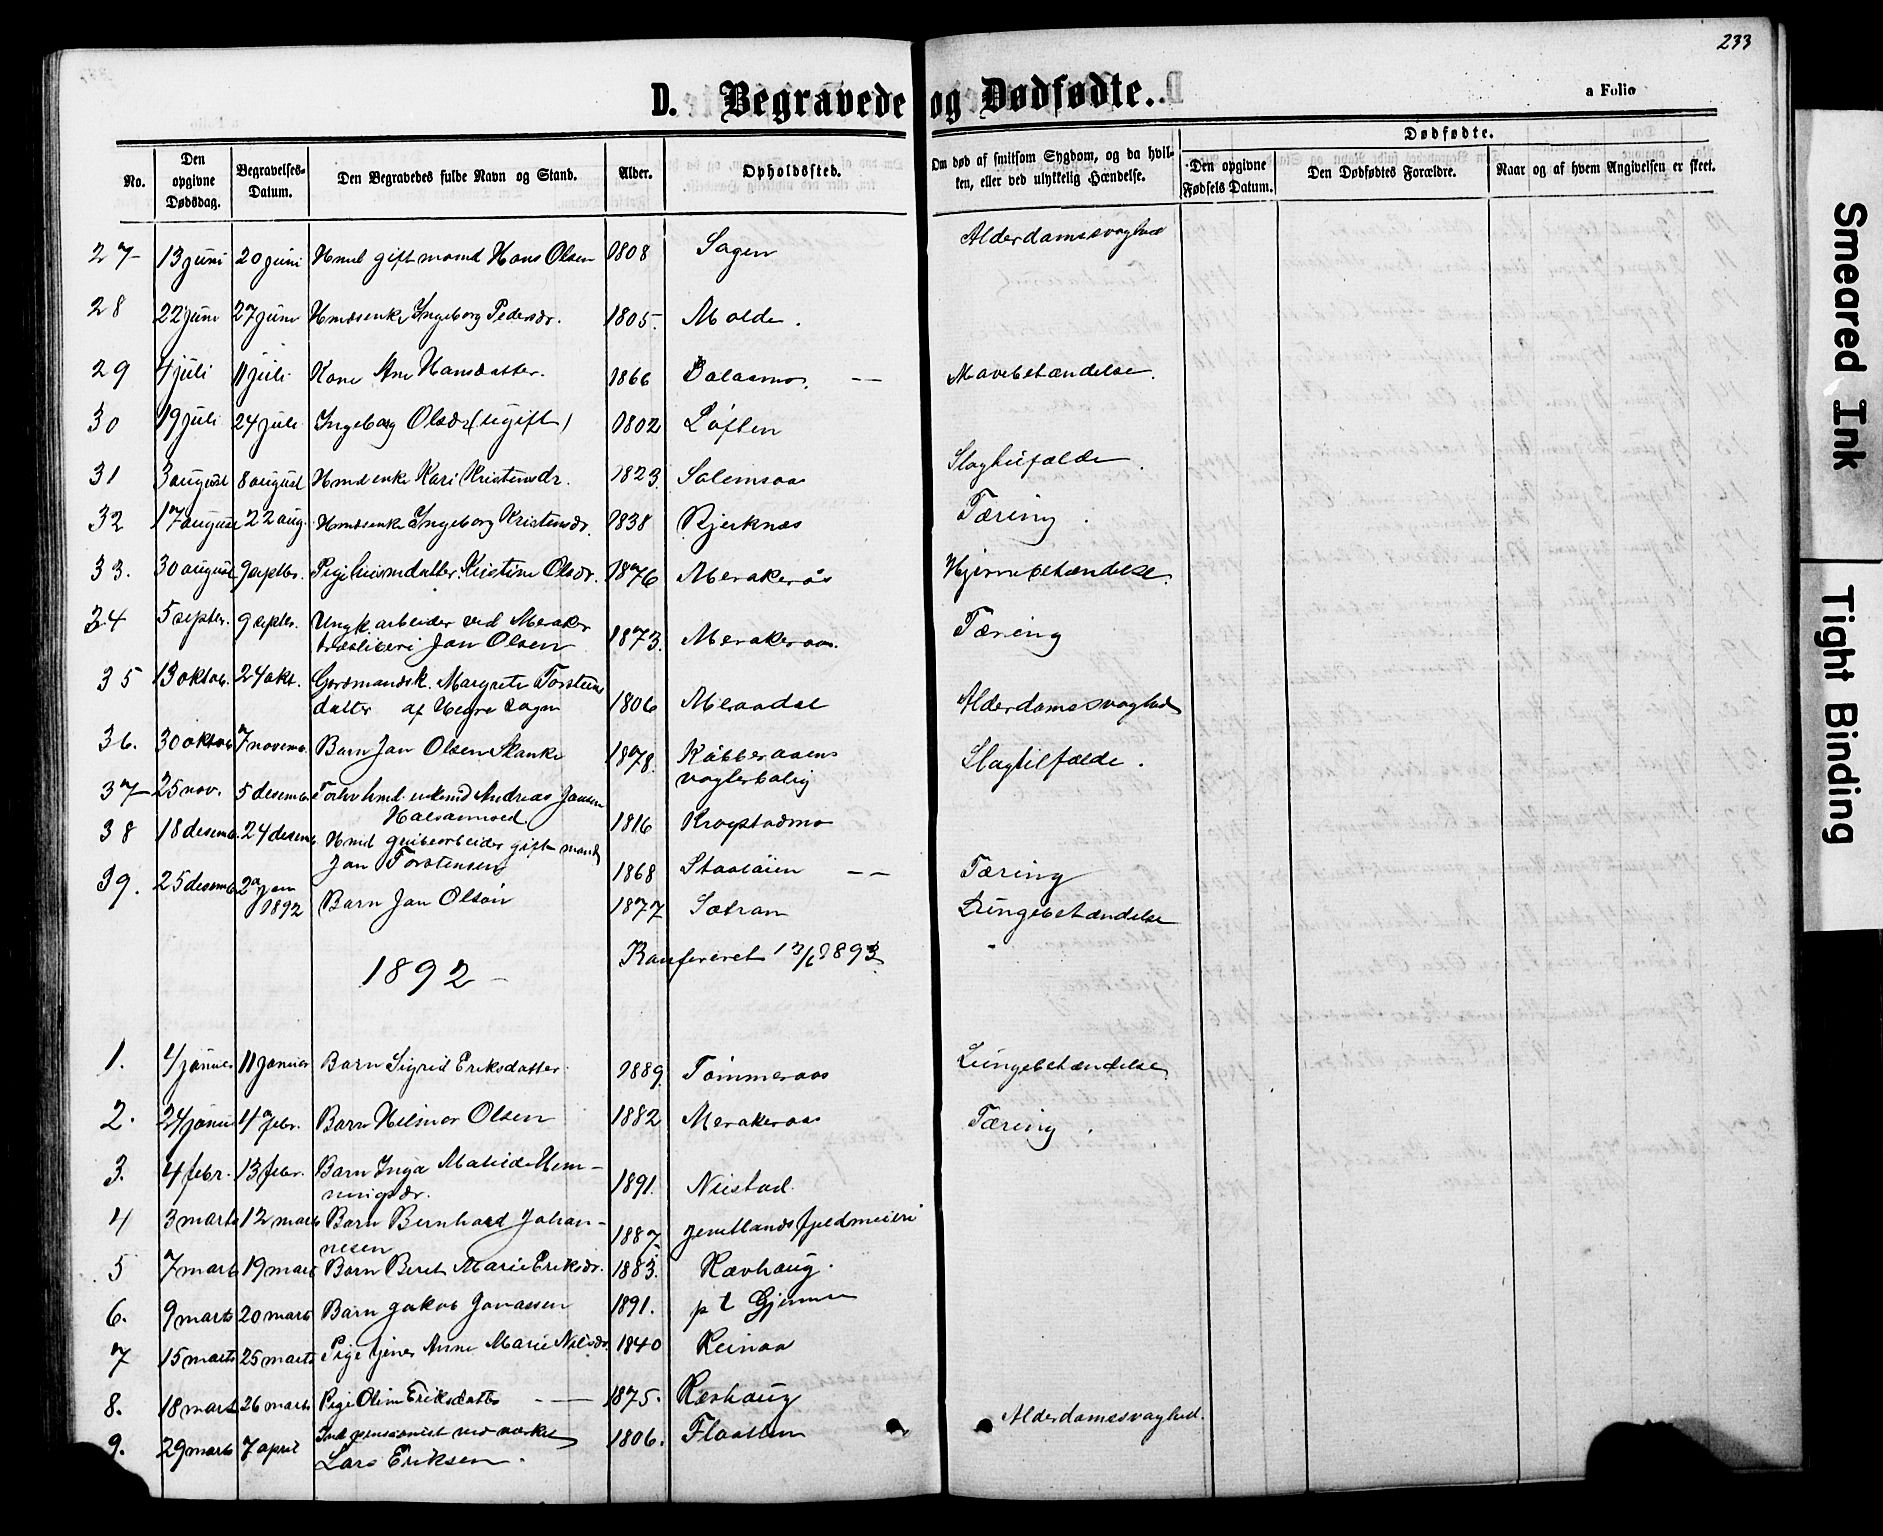 233
D. Begravede og Dødfødte.
a Folio
No. | Den opgivne Dødsdag. | Begravelses-Datum. | Den Begravedes fulde Navn og Stand. | Alder. | Opholdssted. | Om død af smitsom Sygdom, og da hvilken, eller ved ulykkelig Hændelse. | Dødfødte. Den opgivne Fødsels Datum. | Den Dødfødtes Forældre. | Naar og af hvem Angivelsen er skeet.
27 13 juni 20 juni Hmd gift mand Hans Olsen 1808 Sagen Alderdomssvaghed
28 22 juni 27 juni Hmdsenke Ingeborg Pedersdr. 1805. Molde.
29 4 juli 11 juli Kone Ane Hansdatter. 1866 Dalaamo. — Mavebetændelse.
30 19 juli 24 juli Ingeborg Olsdr (ugift) 1802 Løften
31 3 august 8 august Hmd enke Kari Kristensdr. 1823. Salemsaa Slagtilfælde.
32 17 august 22 aug. Hmdsenke Ingeborg Kristensdr. 1838 Bjerknæs Tæring.
33. 30 august 9 septbr. Pige husmdatter Kristine Olsdr. 1876 Merakerås Hjernebetændelse.
34 5 septbr. 9 septbr. Ungk. arbeider ved Meraker
træsliberi Jon Olsen 1873. Merakeraas. Tæring
35 13 oktob. 24 okt. Gardmandsk. Margrete Torstens
datter af Hegre sogn 1806 Meraadal Alderdomssvaghed
36. 30 oktob 7 novemb. Barn Jon Olsen Stanke 1878. Kobberaaens
vogterbolig Slagtilfælde.
37 25 nov. 5 desemb. Forhv hmd. enkemd Andreas Jonsen
1816 Krogstadmo
38 18 desemb. 24 desemb Hmd grubearbeider gift mand
Jon Torstensen 1868 Staaloien — Tæring
39. 25 desemb 2 jan
1892 Barn Jon Olson 1877 Sætran Lungebetændelse
Konfereret 13/6 1893.
1892
1. 4 januar 11 januar Barn Sigrid Eriksdatter 1889. Tømmeraas Lungebetændelse
2. 24 januar 4 febr. Barn Hilmar Olsen 1882 Merakeraas Tæring.
3. 4 febr. 13 febr. Barn Inga Matilde Hem-
mingsdr. 1891. Nustad
4 3 marts 12 marts Barn Bernhard Johan-
nesen 1887. Jemtlands fjeldmeieri
5 7 marts 19 marts Barn Beret Marie Eriksdr. 1883. Rævhaug.
6. 9 marts 20 marts Barn Jakob Jonassen 1891. p t
7 15 marts 25 marts Pige tjener Anne Marie Nilsdr. 1840 Reinaa
8. 18 marts 26 marts Pige Oline Eriksdatter — 1875. Rævhaug
9. 29 marts 7 april Ind. pensionist ved værket
Lars Eriksen. 1806. Flaatten Alderdomssvaghed.
Smeared Ink
Tight Binding